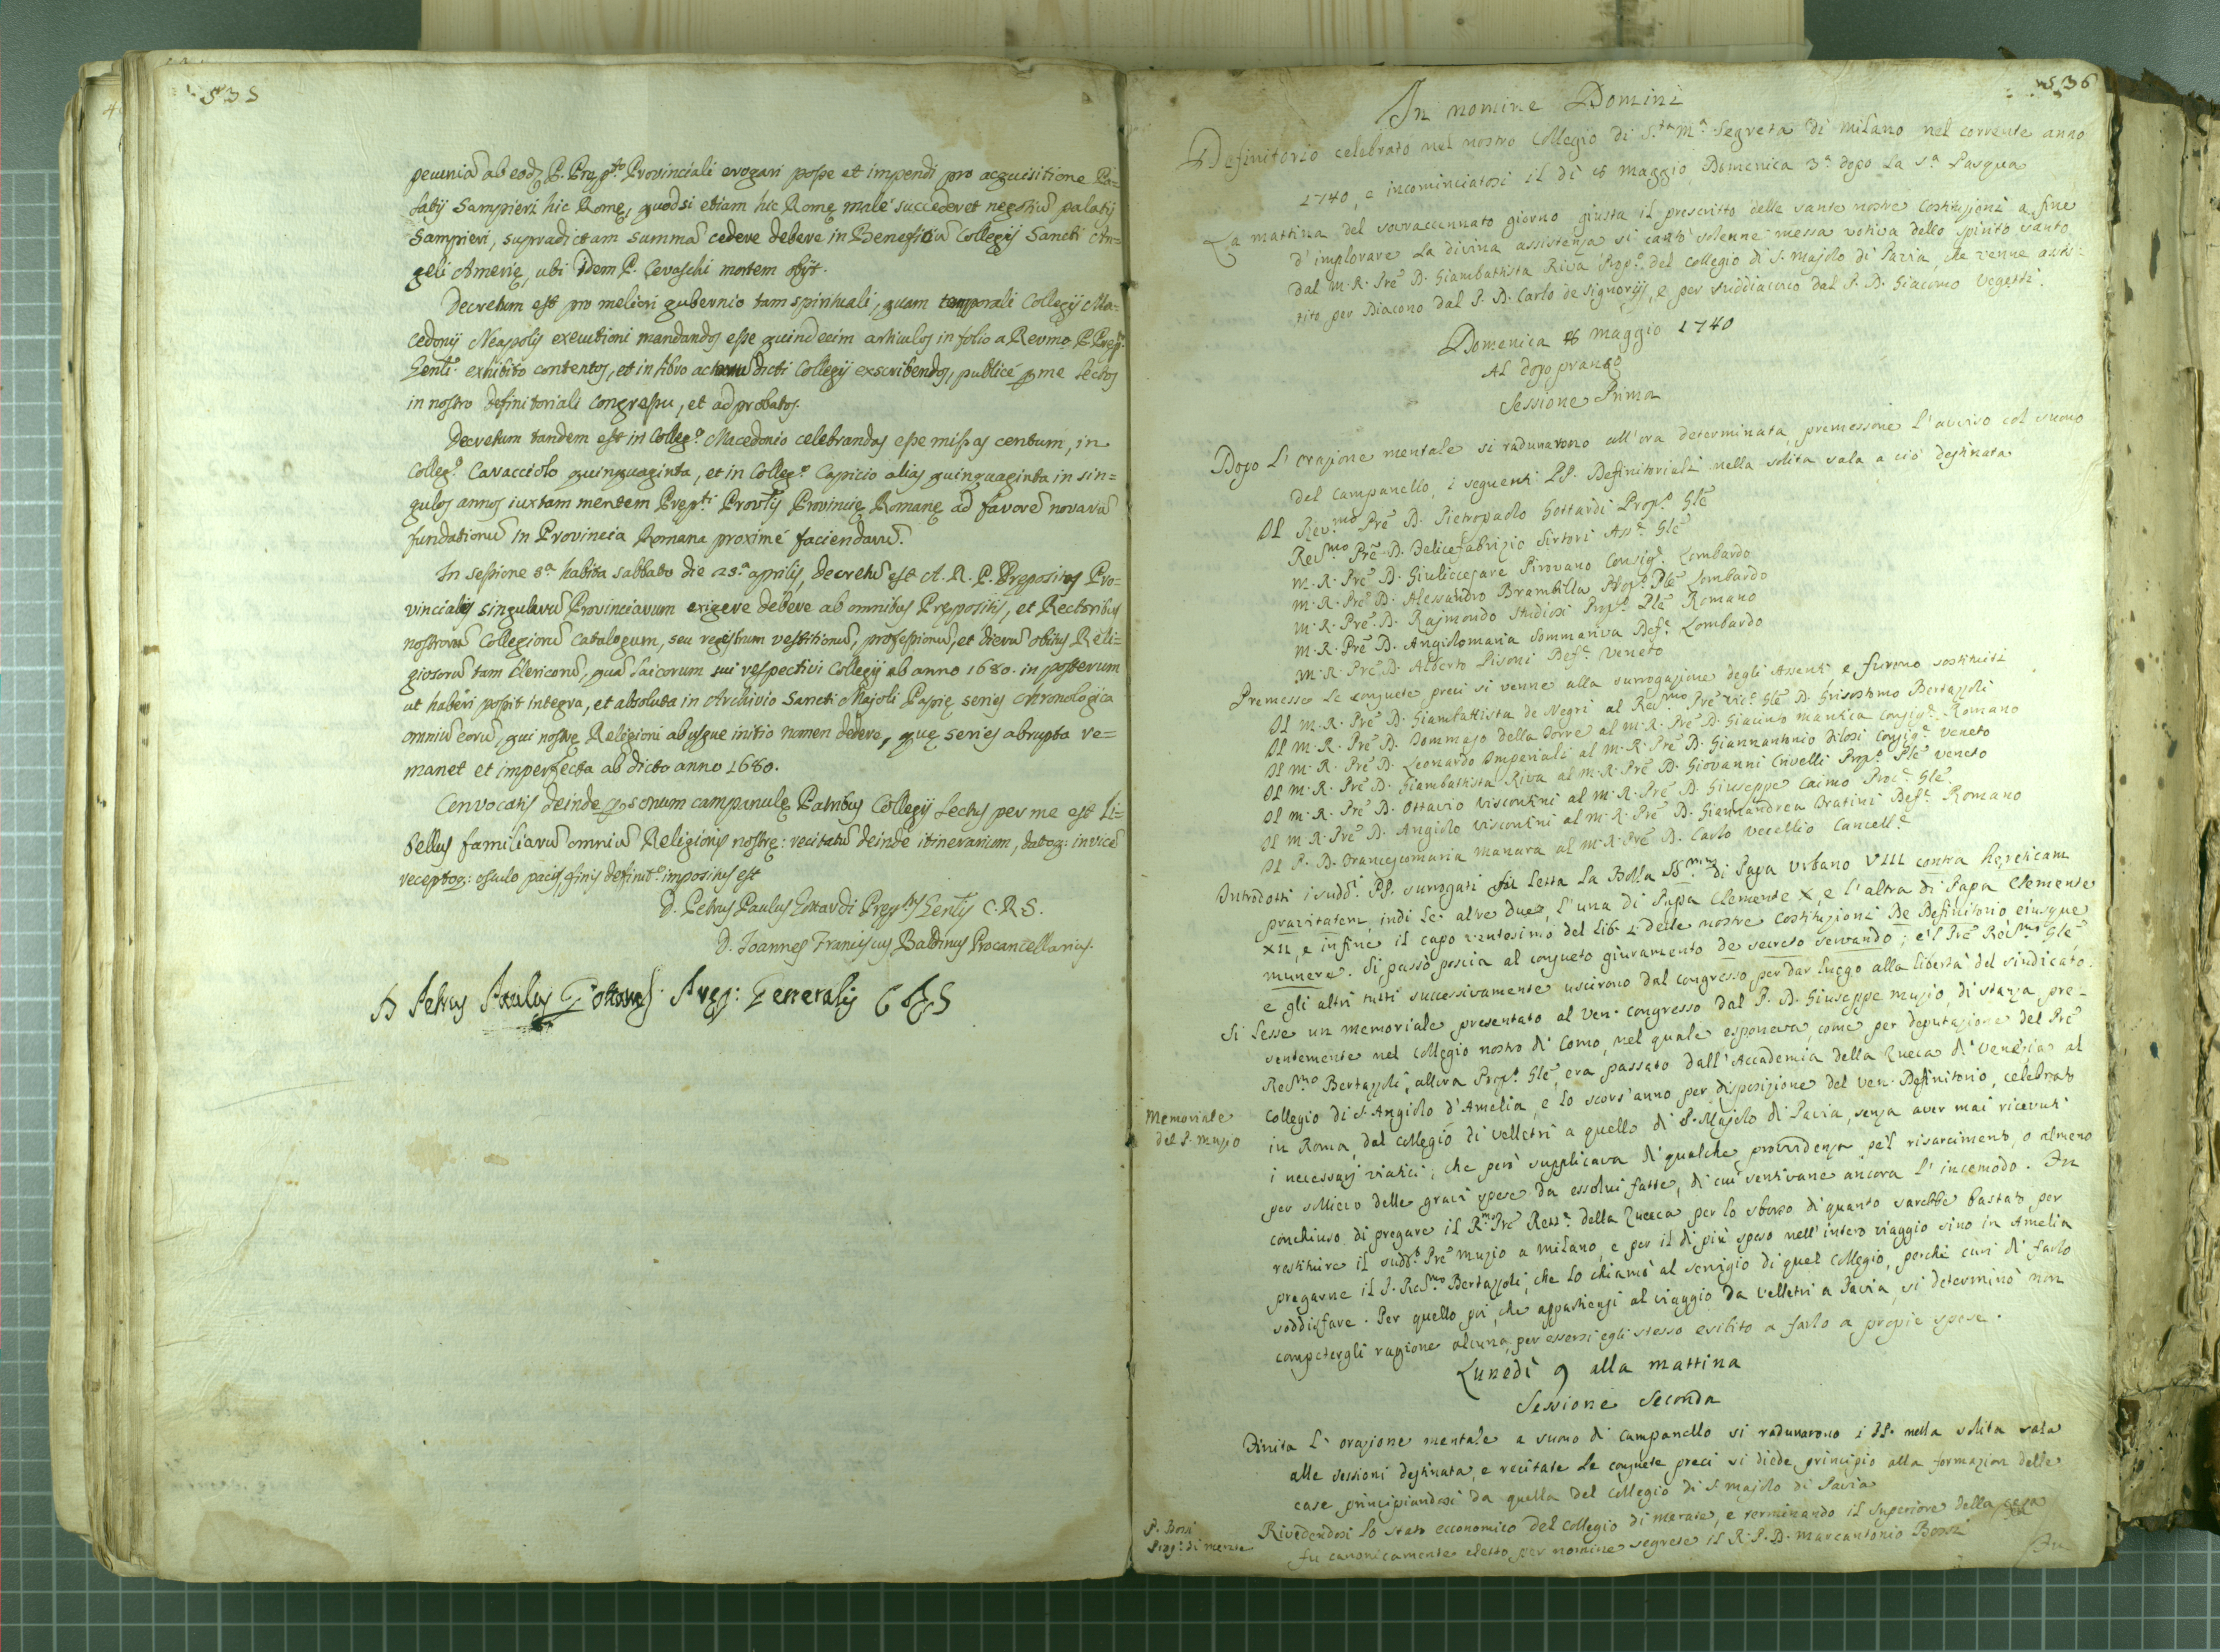 535
pecuniā ab eodē P. Prępto. Provinciali erogari posse et impendi pro acquisitione Pa=
latij Sampieri hic Romę, quod si etiam hic Romę malè succederet negotiū palatij
Sampieri, supradictam summā cedere debere in Beneficiū Collegij Sancti An=
geli Amerię, ubi idem P. Cevaschi mortem obijt.
Decretum est pro meliori gubernio tam spirituali, quam temporali Collegij Ma=
cedonij Neapolis executioni mandandos esse quindecim articulos in folio a Revmo. P. Pręp.
Genli. exhibito contentos, et in libro actorum dicti Collegij exscribendos, publicè per me lectos
in nostro definitoriali congressu, et adprobatos.
Decretum tandem est in Collego. Macedonio celebrandas esse missas centum, in
Collego. Caracciolo quinquaginta, et in Collego. Capricio alias quinquaginta in sin=
gulos annos iuxtam mentem Prępti. Provlis Provincię Romanę ad favorē novarū
fundationū in Provincia Romana proximè faciendarū.
In sessione 8a. habita sabbato die 25a. aprilis, decretū est A. R. P. Prępositos Pro=
vinciales singularū Provinciarum exigere debere ab omnibus Prępositis, et Rectoribus
nostrorū Collegiorū Catalogum, seu registrum vestitionū, professionū, et dierū obitus Reli=
giosorū tam Clericorū, quā Laicorum sui respectivi Collegij ab anno 1680. in posterum
ut haberi possit integra, et absoluta in Archivio Sancti Majoli Papię series chronologica
omniū eorū, qui nostrę Religioni ab usque initio nomen dedere, quę series abrupta re=
manet et imperfecta ab dicto anno 1680.
Convocatis deinde per sonum campanulę Patribus Collegij Lectus per me est Li=
bellus familiarū omniū Religionis nostrę: recitatū deinde itinerarium, datoq: invicē
receptoq: osculo pacis, finis definito. imposinus est
D. Petrus Paulus Gottardi Pręptus Genlis C.R.S.
D. Joannes Franciscus Baldinus Procancellarius.
D Petrus Paulus Gottardi Prep: Generalis CRS
536
In nomine Domini
Definitorio celebrato nel nostro Collegio di S.ta M.a Segreta di Milano nel corrente anno
1740, e incominciatosi il dì 8 Maggio Domenica 3a dopo la Sa Pasqua
La mattina del sovraccennato giorno giusta il prescritto delle sante nostre Costituzioni a fine
d'implorare la divina assistenza si cantò solenne messa votiva dello spirito santo
dal M. R. Prē D. Giambattista Riva Propo. del Collegio di S. Majolo di Pavia, che venne assis-
tito per Diacono dal P. D. Carlo de Signorijs, e per suddiacono dal P. D. Giacomo Vegetti.
Domenica 8 Maggio 1740
Al dopo pranzo
Sessione Prima
Dopo l'orazione mentale si radunarono all'ora determinata, premessone l'avviso col suono
del Campanello, i seguenti PP. Definitoriali nella solita sala a ciò destinata
Il Rev.mo Prē D. Pietropaolo Gottardi Propo. Glē
Rev.mo Prē D. Felicefabrizio Sirtori Asse. Glē
M. R. Prē D. Giuliocesare Pirovano Consige. Lombardo
M. R. Prē D. Alessandro Brambilla Propo. Plē Lombardo
M. R. Prē D. Rajmondo Studiosi Propo. Plē Romano
M. R. Prē D. Angiolomaria Sommariva Defe. Lombardo
M. R. Prē D. Alberto Pisoni Defe. Veneto
Premesse le consuete preci si venne alla surrogazione degli Assenti, e furono sostituiti
Il M. R. Prē D. Giambattista de Negri al Rev.mo Prē Vice. Glē D. Grisostomo Bertazzoli
Il M. R. Prē D. Tommaso della Torre al M. R. Prē D. Giacinto Mantica Consige. Romano
Il M. R. Prē D. Leonardo Imperiali al M. R. Prē D. Giannantonio Pilosi Consige. Veneto
Il M. R. Prē D. Giambattista Riva al M. R. Prē D. Giovanni Crivelli Propo. Plē Veneto
Il M. R. Prē D. Ottavio Viscontini al M. R. Prē D. Giuseppe Caimo Proc.e Glē
Il M. R. Prē D. Angiolo Viscontini al M. R. Prē D. Giannandrea Oratini Defe. Romano
Il P. D. Francescomaria Manara al M. R. Prē D. Carlo Vecellio Cancelle.
Introdotti i sudd.i PP. surrogati fù letta la Bolla SS.mi di Papa Urbano VIII contra hęreticam
pravitatem, indi le altre due, l'una di Papa Clemente X, e l'altra di Papa Clemente
XII, e infine il capo ventesimo del lib. 2 delle nostre Costituzioni De Definitorio, eiusque
munere. Si passò poscia al consueto giuramento de secreto servando; e'l Prē Rev.mo Glē,
e gli altri tutti successivamente uscirono dal congresso per dar luogo alla libertà del sindicato.
Si lesse un memoriale presentato al Ven. congresso dal P. D. Giuseppe Muzio, di stanza pre-
sentemente nel Collegio nostro di Como, nel quale esponeva, come per deputazione del Prē
Rev.mo Bertazzoli, allora Propo. Glē, era passato dall'Accademia della Zueca di Venezia al
Collegio di S. Angiolo d'Amelia, e lo scors'anno per disposizione del Ven. Definitorio, celebrato
in Roma, dal Collegio di Velletri a quello di S. Majolo di Pavia, senza aver mai ricevuti
i necessarj viatici; che però supplicava di qualche provvidenza pe'l risarcimento, o almeno
per sollievo delle gravi spese da essolui fatte, di cui sentivane ancora l'incomodo. Fu
conchiuso di pregare il R.mo Prē Retto. della Zueca per lo sborso di quanto sarebbe bastato per
restituire il sudd.o Prē Muzio a Milano, e per il di più speso nell'intero viaggio sino in Amelia
pregarne il P. Rev.mo Bertazzoli, che lo chiamò al servigio di quel Collegio, perché curi di farlo
soddisfare. Per quello poi, che appartiensi al viaggio da Velletri a Pavia, si determinò non
competergli ragione alcuna, per essersi egli stesso esibito a farlo a propie spese.
Memoriale
del P. Muzio
Lunedì 9 alla mattina
Sessione Seconda
Finita l'orazione mentale a suono di campanello si radunarono i PP. nella solita sala
alle sessioni destinata, e recitate le consuete preci si diede principio alla formazion delle
case, principiandosi da quella del Collegio di S. Majolo di Pavia
Rivedendosi lo stato economico del Collegio di Merate, e terminando il Superiore della
fu canonicamente eletto per nomine segrete il R. P. D. Marcantonio Bossi
P. Bossi
Propo. di Merate